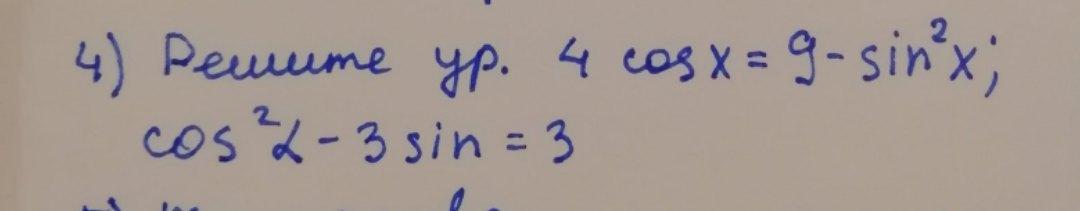 4) Решите ур. 4 cos x = 9 - sin²x;
cos²α - 3 sin = 3